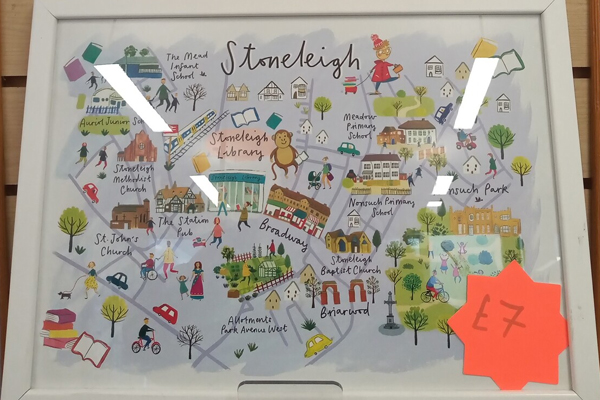 Stoneleigh
The Mead
Infant
School
Auriol Junior
Meadow
Primary
School
Stoneleigh
Library
Stoneleigh
Methodist
Church
Nonsuch Park
Nonsuch Primary
School
The Station
Pub
Broadway
St. John's
Church
Stoneleigh
Baptist Church
Allotments
Park Avenue West
Briarwood
£7